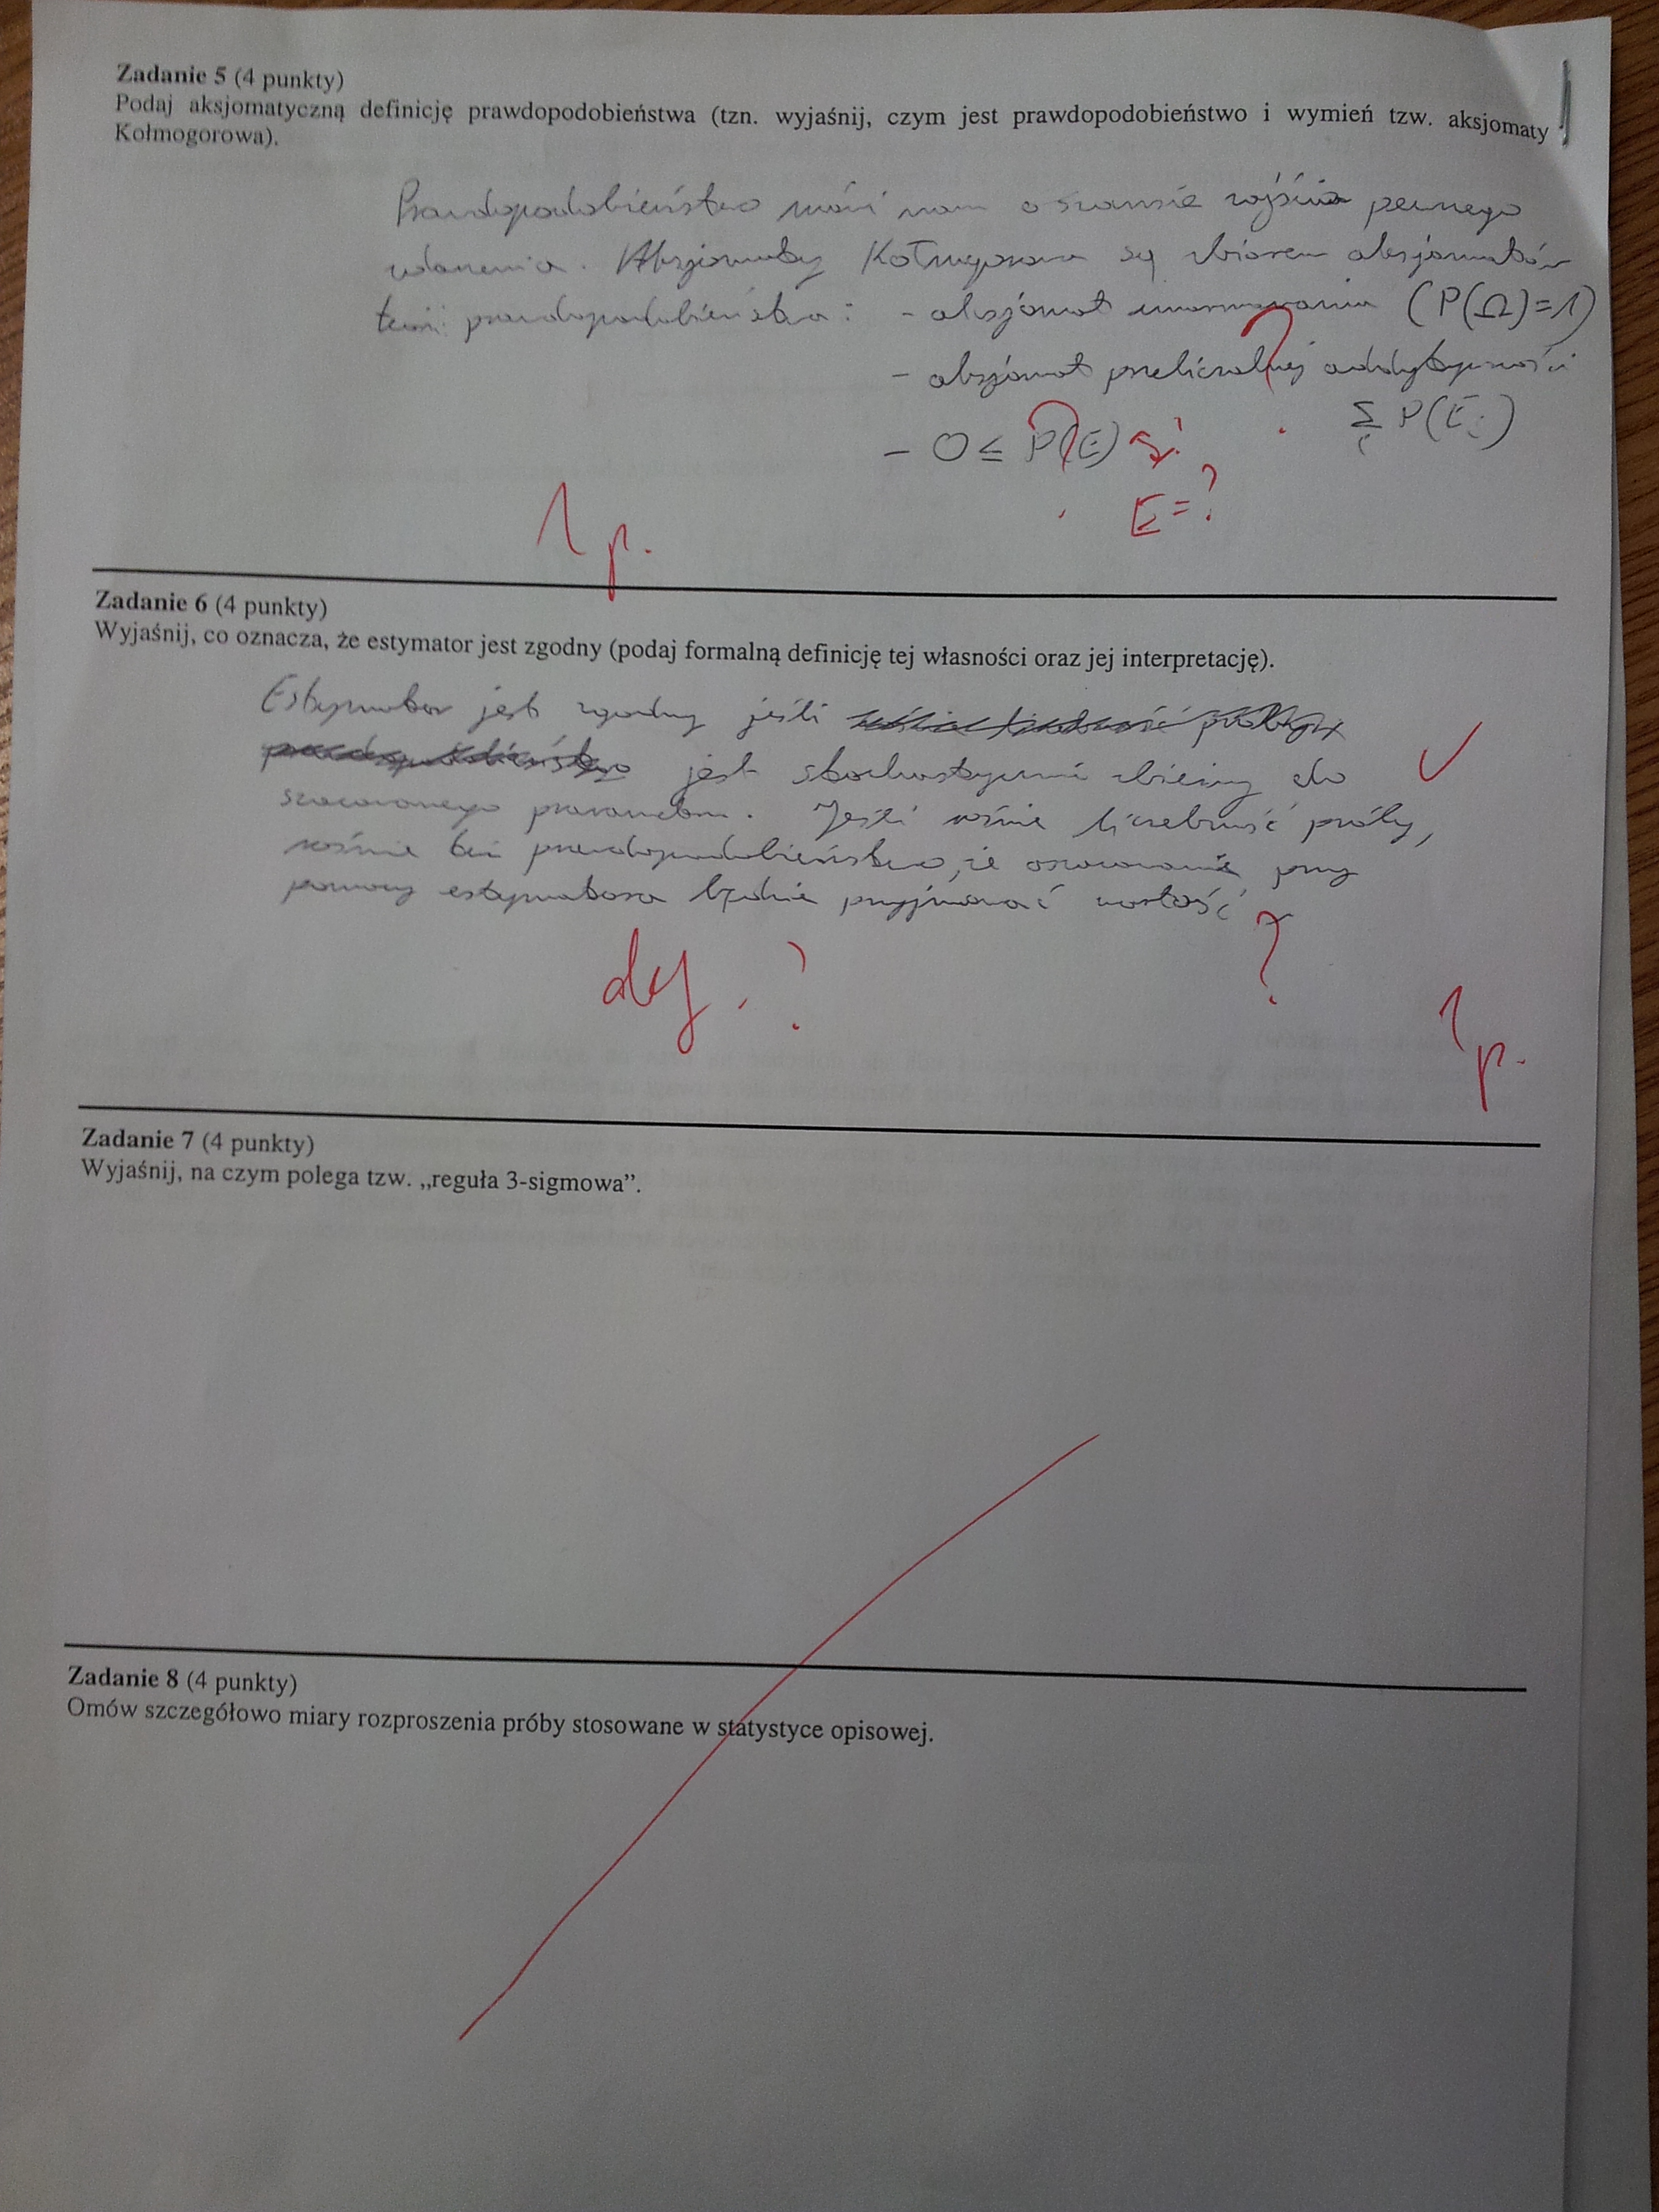 Zadanie 5 (4 punkty)
Podaj aksjomatyczną definicję prawdopodobieństwa (tzn. wyjaśnij, czym jest prawdopodobieństwo i wymień tzw. aksjomaty
Kołmogorowa).
Prawdopodobieństwo mówi nam o szansie zajścia pewnego
zdarzenia. Aksjomaty Kołmogorowa są zbiorem aksjomatów
teorii prawdopodobieństwa: - aksjomat unormowania (P(Ω)=1)
- aksjomat przeliczalnej addytywności
- 0 ≤ P(E) ≤1 Σ P(Ei)
i
E=?
1 p.
Zadanie 6 (4 punkty)
Wyjaśnij, co oznacza, że estymator jest zgodny (podaj formalną definicję tej własności oraz jej interpretację).
Estymator jest zgodny jeśli
jest stochastycznie zbieżny do
szacowanego parametru. Jeśli rośnie liczebność próby,
rośnie też prawdopodobieństwo, że oszacowanie przy
pomocy estymatora będzie przyjmować wartość
def. ? ?
1 p.
Zadanie 7 (4 punkty)
Wyjaśnij, na czym polega tzw. „reguła 3-sigmowa”.
Zadanie 8 (4 punkty)
Omów szczegółowo miary rozproszenia próby stosowane w statystyce opisowej.